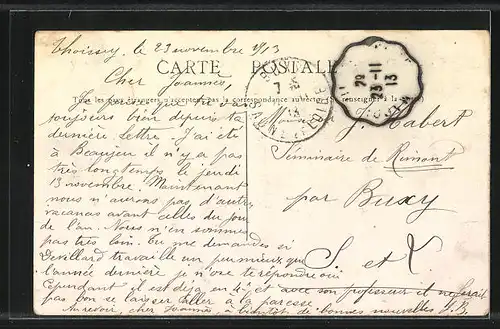 Thoissey, le 23 novembre 1913
CARTE POSTALE
Cher Joannès,
Tous les pays étrangers n'acceptent pas la correspondance au verso (se renseigner à la poste)
Je
toujours bien depuis ta
dernière lettre. J'ai été
à Beaujeu il n'y a pas
très longtemps le jeudi
13 novembre. Maintenant
nous n'aurons pas d'autres
vacances avant celles du jour
de l'an. Nous n'en sommes
pas très loin. Tu me demandes si
Devillard travaille un peu mieux que
l'année dernière je n'ose te répondre oui
Cependant il est déjà en 4e et avec son professeur il ne ferait
pas bon se laisser aller à la paresse.
Au revoir, cher Joannès à bientôt de bonnes nouvelles
Monsieur
J. Habert
Séminaire de Rimont
par Buxy
S. et L.
23-11
13